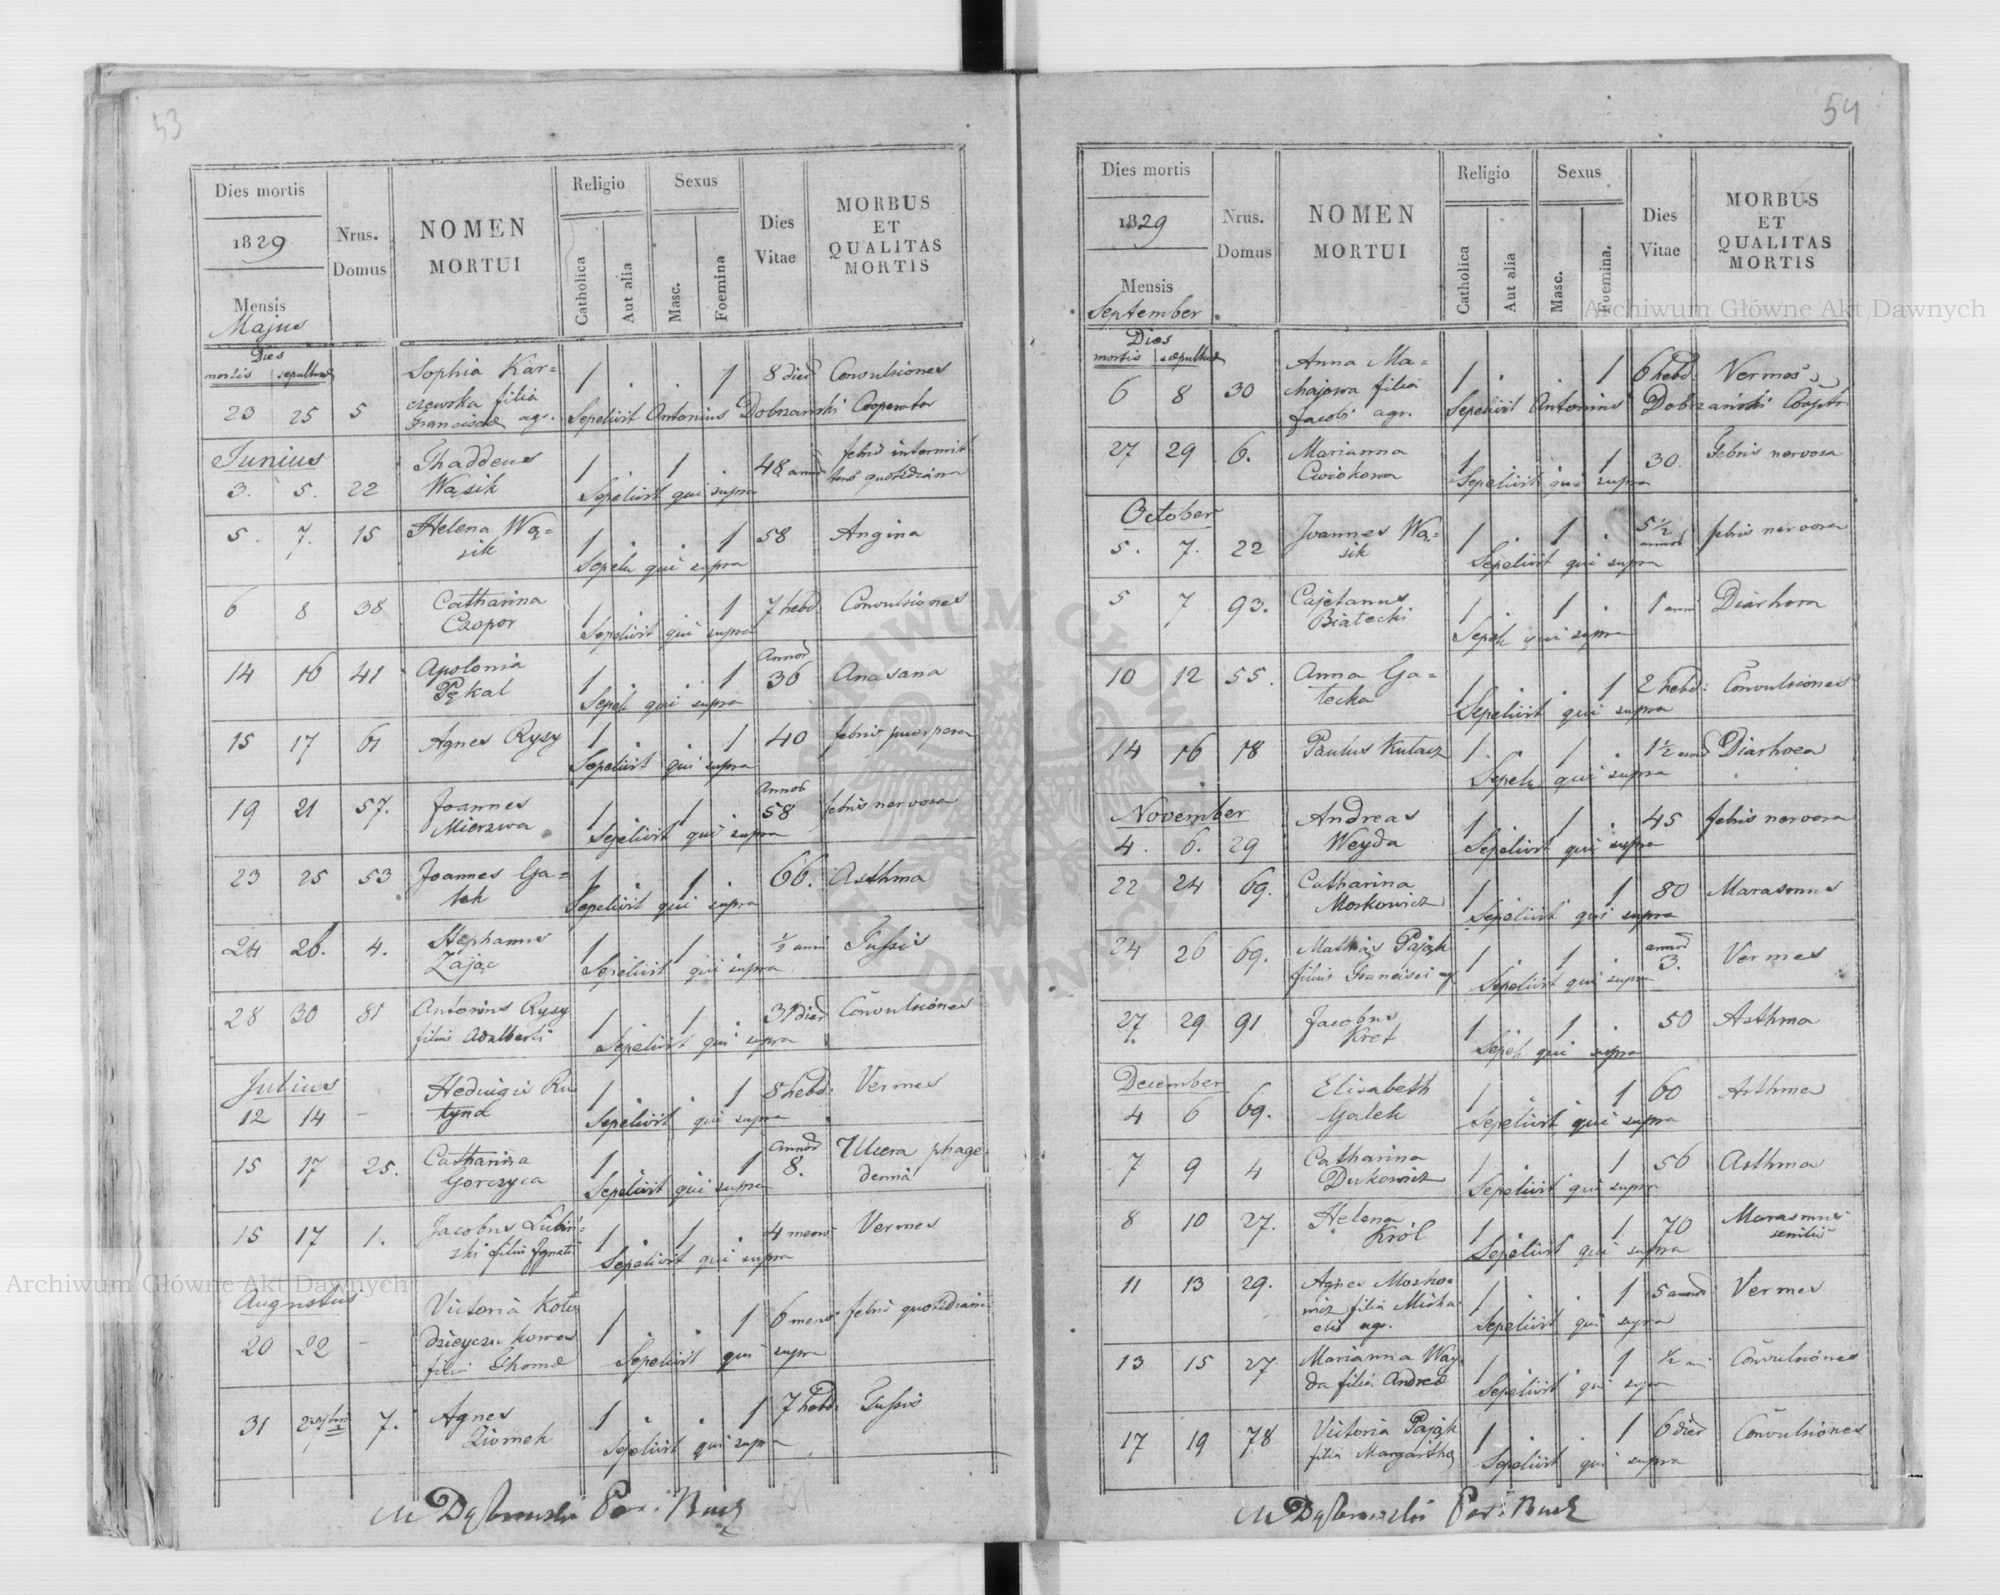 53
Dies mortis
1829
Mensis
Majus
Nrus.
Domus
NOMEN
MORTUI
Religio
Catholica
Aut alia
Sexus
Masc.
Foemina
Dies
Vitae
MORBUS
ET
QUALITAS
MORTIS
Dies
mortis sepulturae
23 25 5 Sophia Kar= 1 . . 1 8 dier Convulsiones
czewska filia
Francisci agr. Sepelivit Antonius Dobrzański Cooperator
Junius
3. 5. 22 Thaddeus 1 . 1 . 48 annor febris intermit
Wąsik Sepelivit qui supra tens quotidiana
5. 7. 15 Helena Wą= 1 . . 1 58 Angina
sik Sepeli qui supra
6 8 38 Catharina 1 . . 1 7 hebd. Convulsiones
Czopor Sepelivit qui supra
14 16 41 Apolonia 1 . . 1 Annor 36 Anasana
Pękal Sepeli qui supra
15 17 61 Agnes Rysy 1 . . 1 40 febris puerpera
Sepelivit qui supra
19 21 57. Joannes 1 . 1 . Annor 58 febris nervosa
Mierzwa Sepelivit qui supra
23 25 53 Joannes Ga= 1 . 1 . 66. Asthma
lek Sepelivit qui supra
24 26. 4. Stephanus 1 . 1 . 1/2 anni Tussis
Zając Sepelivit qui supra
28 30 81 Antonius Rysy 1 . 1 . 31 dier Convulsiones
filius Adalberti Sepelivit qui supra
Julius
12 14 – Hedvigis Ru 1 . . 1 8 hebd: Vermes
tyna Sepelivit qui supra
15 17 25. Catharina 1 . . 1 annor 8. Ulcera phage
Gorczyca Sepelivit qui supra denna
15 17 1. Jacobus Lubiń= 1 . 1 . 4 mens Vermes
ski filius Ignatii Sepelivit qui supra
Augustus
20 22 – Victoria Koło 1 . . 1 6 mens febris quotidiana
filia Thomae Sepelivit qui supra
31 7. Agnes 1 . . 1 7 hebd: Tussis
Ziomek Sepelivit qui supra
M Dąbrowski Par: Buck
54
Dies mortis
1829
Mensis
September.
Nrus.
Domus
NOMEN
MORTUI
Religio
Catholica
Aut alia
Sexus
Masc.
Foemina.
Dies
Vitae
MORBUS
ET
QUALITAS
MORTIS
Dies
mortis sepulturae
6 8 30 Anna Ma= 1 . . 1 6 hebd: Vermes
chajowa filia
Jacobi agr. Sepelivit Antonius Dobrzański Cooptr
27 29 6. Marianna 1 . . 1 30. Febris nervosa
Cwiokowa Sepelivit qui supra
October
5. 7. 22 Joannes Wą= 1 . 1 . 5 1/2 annor febris nervosa
sik Sepelivit qui supra
5 7 93. Cajetanus 1 . 1 . 1 anni Diarhora
Białecki Sepeli qui supra
10 12 55. Anna Ga= 1 . . 1 2 hebd: Convulsiones
łecka Sepelivit qui supra
14 16 18 Paulus Kułacz 1 . 1 . 1 1/2 anni Diarhoea
Sepeli qui supra
November
4. 6. 29 Andreas 1 . 1 . 45 febris nervosa
Weyda Sepelivit qui supra
22 24 69. Catharina 1 . . 1 80 Marasmus
Moskowicz Sepelivit qui supra
24 26 69. Mathias Pająk 1 . 1 . annor 3. Vermes
filius Francisci ag Sepelivit qui supra
27. 29 91 Jacobus 1 . 1 . 50 Asthma
Kret Sepeli qui supra
December
4 6 69. Elisabeth 1 . . 1 60 Asthma
Galek Sepelivit qui supra
7 9 4 Catharina 1 . . 1 56 Asthma
Dukowicz Sepelivit qui supra
8 10 27. Helena 1 . . 1 70 Marasmus
Król Sepelivit qui supra senilis
11 13 29. Agnes Mosko= 1 . . 1 5 annor Vermes
wicz filia Micha
elis agr. Sepelivit qui supra
13 15 27 Marianna Way 1 . . 1 1/2 an Convulsiones
da filia Andreae Sepelivit qui supra
17 19 78 Victoria Pająk 1 . . 1 6 dier Convulsiones
filia Margarithae Sepelivit qui supra
M Dąbrowski Par: Buck
Archiwum Główne Akt Dawnych
Archiwum Główne Akt Dawnych
ARCHIWUM GŁÓWNE AKT DAWNYCH